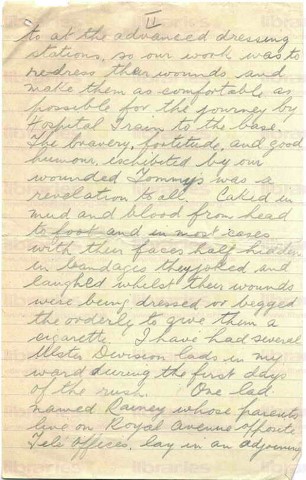 II
to at the advanced dressing
stations, so our work was to
redress their wounds and
make them as comfortable as
possible for the journey by
Hospital Train to the base.
The bravery, fortitude, and good
humour exibited by our
wounded Tommys was a
revelation to all. Caked in
mud and blood from head
to foot and in most cases
with their faces half hidden
in bandages they joked and
laughed whilst their wounds
were being dressed or begged
the orderly to give them a
cigarette. I have had several
Ulster Division lads in my
ward during the first days
of the rush. One lad
named Rainey whose parents
live on Royal Avenue opposite
Tele Offices, lay in an adjoining